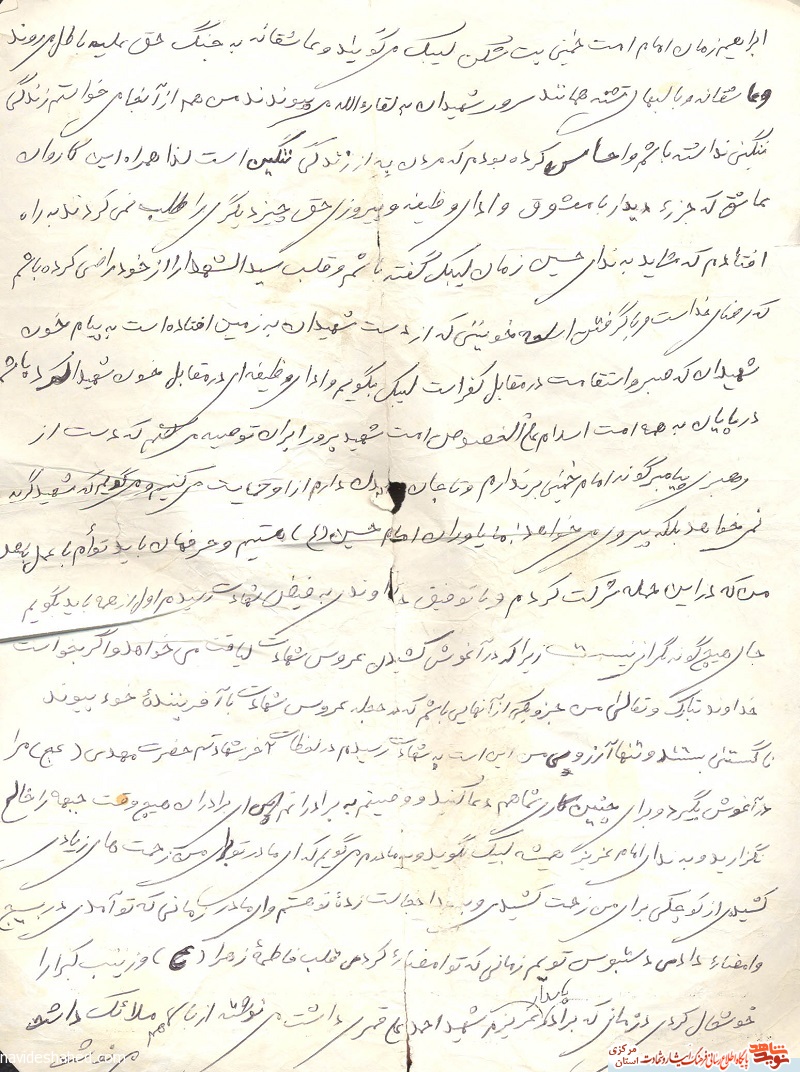 ابراهیم زمان امام امت خمینی بت شکن لبیک می گویند و عاشقانه به جنگ حق علیه باطل می روند
و عاشقانه و با لبهای تشنه همانند سرور شهیدان به لقاء الله می پیوندند من هم از آنجا می خواستم زندگی
ننگینی نداشته باشم و احساس کرده بودم که مردن به از زندگی ننگین است لذا همراه این کاروان
عاشق که جزء دیدار با معشوق و ادای وظیفه و پیروزی حق چیز دیگری را طلب نمی کردند به راه
افتادم که شاید به ندای حسین زمان لبیک گفته باشم و قلب سید الشهدا را از خود راضی کرده باشم
که رضای خداست و با گرفتن اسلحه خونینی که از دست شهیدان به زمین افتاده است به پیام خون
شهیدان که صبر و استقامت در مقابل کفر است لبیک بگویم و ادای وظیفه ای در مقابل خون شهیدان کرده باشم
در پایان به همه امت اسلام علی الخصوص امت شهید پرور ایران توصیه می کنم که دست از
رهبری پیامبر گونه امام خمینی برندارم و تا جان در بدن دارم از او حمایت می کنیم و می گویم که شهید گریه
نمی خواهد بلکه پیرو می خواهد ما یاوران امام حسین (ع) هستیم و حرفمان باید توأم با عمل باشد
من که در این حمله شرکت کردم و با توفیق خداوندی به فیض شهادت رسیدم اول از همه باید بگویم
جای هیچ گونه نگرانی نیست زیرا که در آغوش کشیدن عروس شهادت لیاقت می خواهد و اگر بخواست
خداوند تبارک و تعالی من جزو یکی از آنهایی باشم که در حجله عروس شهادت با آفریننده خود پیوند
ناگستنی بستند و تنها آرزوی من این است به شهادت رسیدم در لحظات آخر شهادتم حضرت مهدی (عج) مرا
در آغوش بگیرد و برای چنین کاری شما هم دعا کنید و وصیتم به برادرانم ای برادران هیچ وقت جبهه را خالی
نگزارید و به ندای امام عزیز همیشه لبیک بگوید و به مادرم می گویم که ای مادر تو برای من زحمت های زیادی
کشیدی از کوچکی برای من زحمت کشیدی و خجالت زده تو هستم و ای مادر زمانی که تو آمدی در بسیج
و امضاء دادی دستبوس تویم زمانی که تو امضاء کردی قلب فاطمه زهرا (ع) و زینب کبرا را
خوشحال کردی در زمانی که برادر عزیزم شهید احمد علی قمری داشت می نوشت از ملائک داشت
پایدار
navideshahed.com
نوید شاهد
پایگاه اطلاع رسانی فرهنگ ایثار و شهادت استان مرکزی